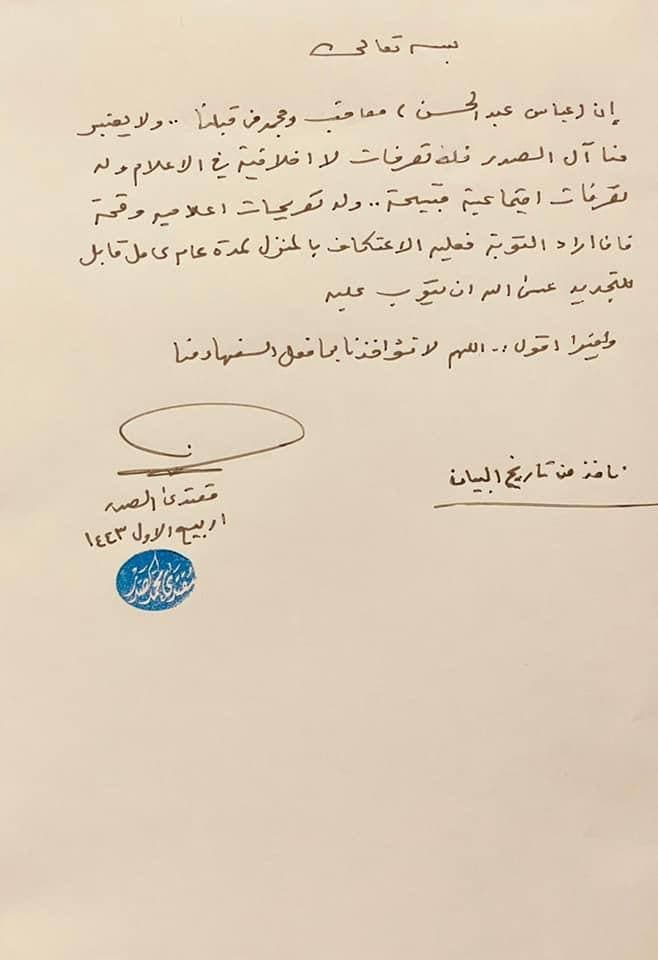 بسمه تعالى
إن (عباس عبد الحسن) معاقب ومجمد من قبلنا .. ولا يعتبر
منا آل الصدر فله تصرفات لا اخلاقية في الاعلام وله
تصرفات اجتماعية قبيحة .. وله تصريحات اعلامية وقحة
فان اراد التوبة فعليه الاعتكاف بالمنزل لمدة عام كامل قابل
للتجديد عسى الله ان يتوب عليه
واخيرا اقول :.. اللهم لا تؤاخذنا بما فعل السفهاء منا
نافذ من تاريخ البيان
مقتدى الصدر
١ ربيع الاول ١٤٤٣
مقتدى محمد صدر